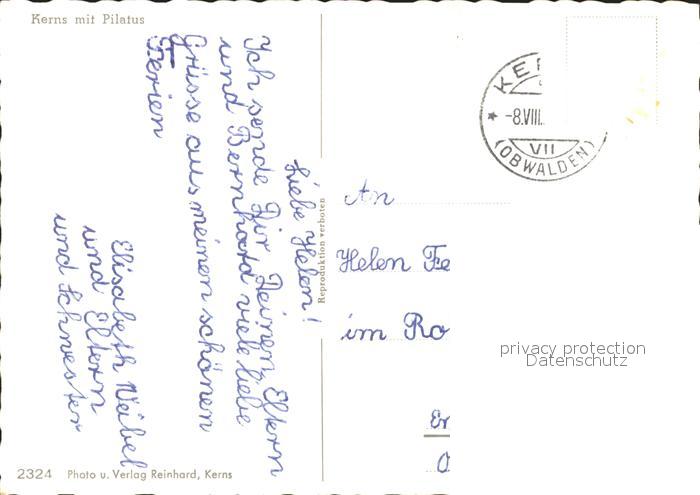 Kerns mit Pilatus
Liebe Helen!
Ich sende Dir, Deinen Eltern
und Bernhard viele liebe
Grüsse aus meinen schönen
Ferien
Elisabeth Weibel
und Eltern
und Schwester
2324 Photo u. Verlag Reinhard, Kerns
Reproduktion verboten
-8.VIII.
VII
(OBWALDEN)
An
Helen Fe
im Ro
privacy protection
Datenschutz